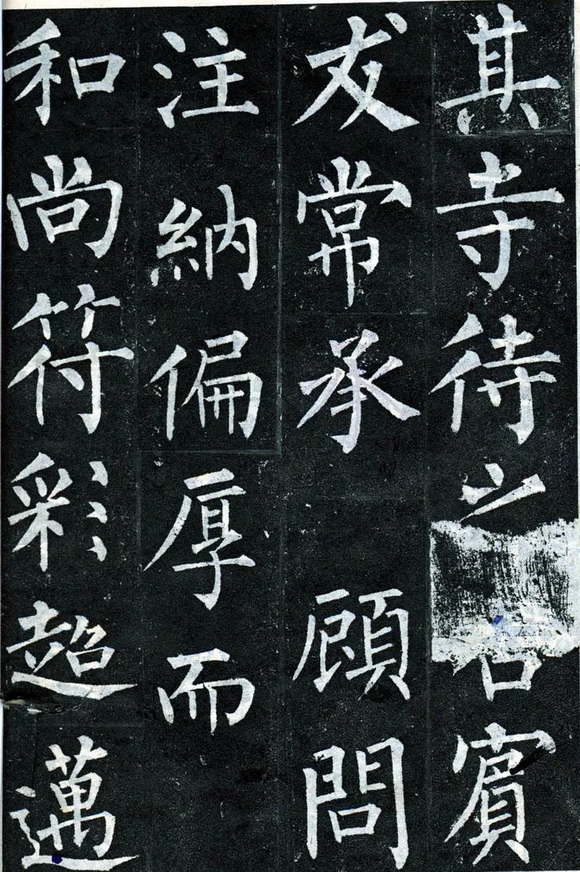 其寺待之若賓
友常承顧問
注納偏厚而
和尚符彩超邁